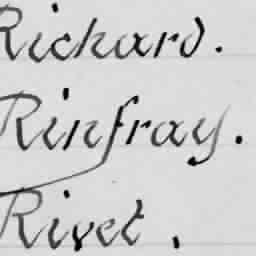 Richard.
Rinfray.
Rivet.